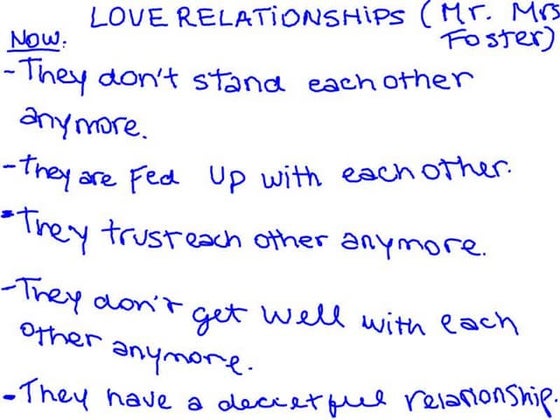 LOVE RELATIONSHIPS (Mr. Mrs
Now: Foster)
- They don't stand each other
anymore.
- They are Fed Up with each other.
- They trust each other anymore.
- They don't get well with each
other anymore.
- They have a deceetful relationship.